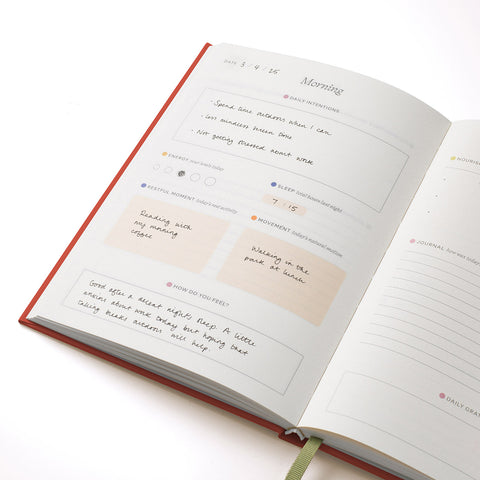 DATE 3 / 4 / 25
Morning
DAILY INTENTIONS
• Spend time outdoors when I can
• Less mindless screen time
• Not getting stressed about work
ENERGY your levels today
SLEEP total hours last night
7 / 15
RESTFUL MOMENT today's rest activity
Reading with
my morning
coffee
MOVEMENT today's natural motion
Walking in the
park at lunch
HOW DO YOU FEEL?
Good after a decent night's sleep. A little
anxious about work today but hoping that
taking breaks outdoors will help.
NOURIS
JOURNAL how was today
DAILY GRAT